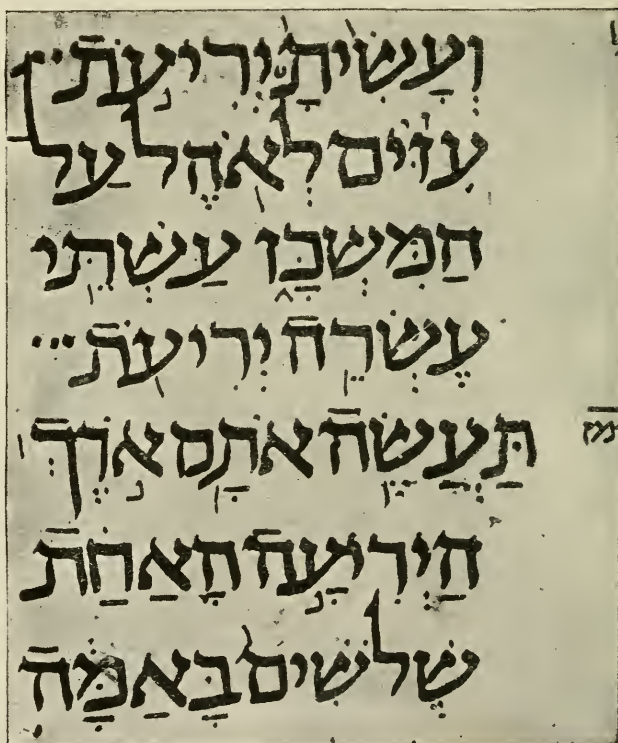 וְעָשִׂיתָ יְרִיעֹת
עִזִּים לְאֹהֶל עַל
הַמִּשְׁכָּן עַשְׁתֵּי
עֶשְׂרֵה יְרִיעֹת
תַּעֲשֶׂה אֹתָם אֹרֶךְ
הַיְרִיעָה הָאַחַת
שְׁלֹשִׁים בָּאַמָּה